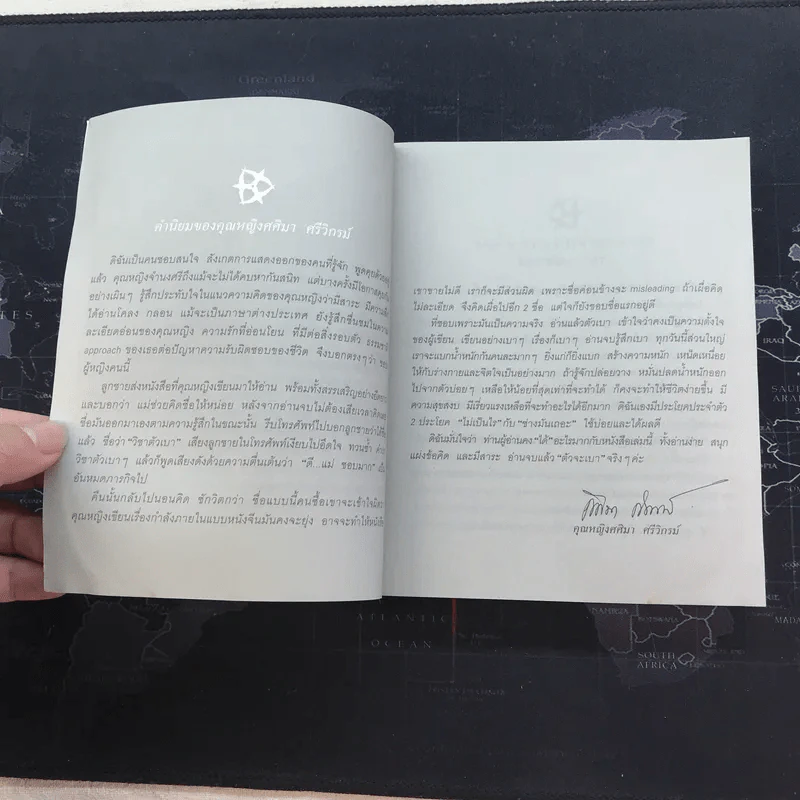 คำนิยมของคุณหญิงศศิมา ศรีวิกรม์
ดิฉันเป็นคนชอบสนใจ สังเกตการแสดงออกของคนที่รู้จัก พูดคุยด้วย
แล้ว คุณหญิงจำนงศรีถึงแม้จะไม่ได้คบหากันสนิท แต่บางครั้งมีโอกาส
อย่างเผินๆ รู้สึกประทับใจในแนวความคิดของคุณหญิงว่ามีสาระ
ได้อ่านโคลง กลอน แม้จะเป็นภาษาต่างประเทศ ยังรู้สึกชื่นชมในความ
ละเอียดอ่อนของคุณหญิง ความรักที่อ่อนโยน ที่มีต่อสิ่งรอบตัว
approach ของเธอต่อปัญหาความรับผิดชอบของชีวิต จึงบอกตรงๆว่า
ผู้หญิงคนนี้
ลูกชายส่งหนังสือที่คุณหญิงเขียนมาให้อ่าน พร้อมทั้งสรรเสริญอย่าง
และบอกว่า แม่ช่วยคิดชื่อให้หน่อย หลังจากอ่านจบไม่ต้องเสียเวลา
ชื่อมันออกมาเองตามความรู้สึกในขณะนั้น รีบโทรศัพท์ไปบอกลูกชายว่า
แล้ว ชื่อว่า "วิชาตัวเบา" เสียงลูกชายในโทรศัพท์เงียบไปอึดใจ ทวนซ้ำ
วิชาตัวเบาๆ แล้วก็พูดเสียงดังด้วยความตื่นเต้นว่า "ดี...แม่ ชอบมาก"
อันหมดภารกิจไป
คืนนั้นกลับไปนอนคิด ชักวิตกว่า ชื่อแบบนี้คนซื้อเขาจะเข้าใจ
คุณหญิงเขียนเรื่องกำลังภายในแบบหนังจีนมันคงจะยุ่ง อาจจะทำให้
เขาขายไม่ดี เราก็จะมีส่วนผิด เพราะชื่อค่อนข้างจะ misleading ถ้าเผื่อคิด
ไม่ละเอียด จึงคิดเผื่อไปอีก 2 ชื่อ แต่ใจก็ยังชอบชื่อแรกอยู่ดี
ที่ชอบเพราะมันเป็นความจริง อ่านแล้วตัวเบา เข้าใจว่าคงเป็นความตั้งใจ
ของผู้เขียน เขียนอย่างเบาๆ เรื่องก็เบาๆ อ่านจบก็รู้สึกเบา ทุกวันนี้ส่วนใหญ่
เราจะแบกน้ำหนักกันคนละมากๆ ยิ่งแก่ก็ยิ่งแบก สร้างความหนัก เหน็ดเหนื่อย
ให้กับร่างกายและจิตใจเป็นอย่างมาก ถ้ารู้จักปล่อยวาง หมั่นปลดน้ำหนักออก
ไปจากตัวบ่อยๆ เหลือให้น้อยที่สุดเท่าที่จะทำได้ ก็คงจะทำให้ชีวิตง่ายขึ้น มี
ความสุขสงบ มีเรี่ยวแรงเหลือที่จะทำอะไรได้อีกมาก ดิฉันเองมีประโยคประจำตัว
2 ประโยค "ไม่เป็นไร" กับ "ช่างมันเถอะ" ใช้บ่อยและได้ผลดี
ดิฉันมั่นใจว่า ท่านผู้อ่านคง"ได้"อะไรมากกับหนังสือเล่มนี้ ทั้งอ่านง่าย สนุก
แฝงข้อคิด และมีสาระ อ่านจบแล้ว "ตัวจะเบา"จริงๆค่ะ
คุณหญิงศศิมา ศรีวิกรม์
Greenland
ATLANTIC
OCEAN
NAMIBIA
SOUTH
AFRICA